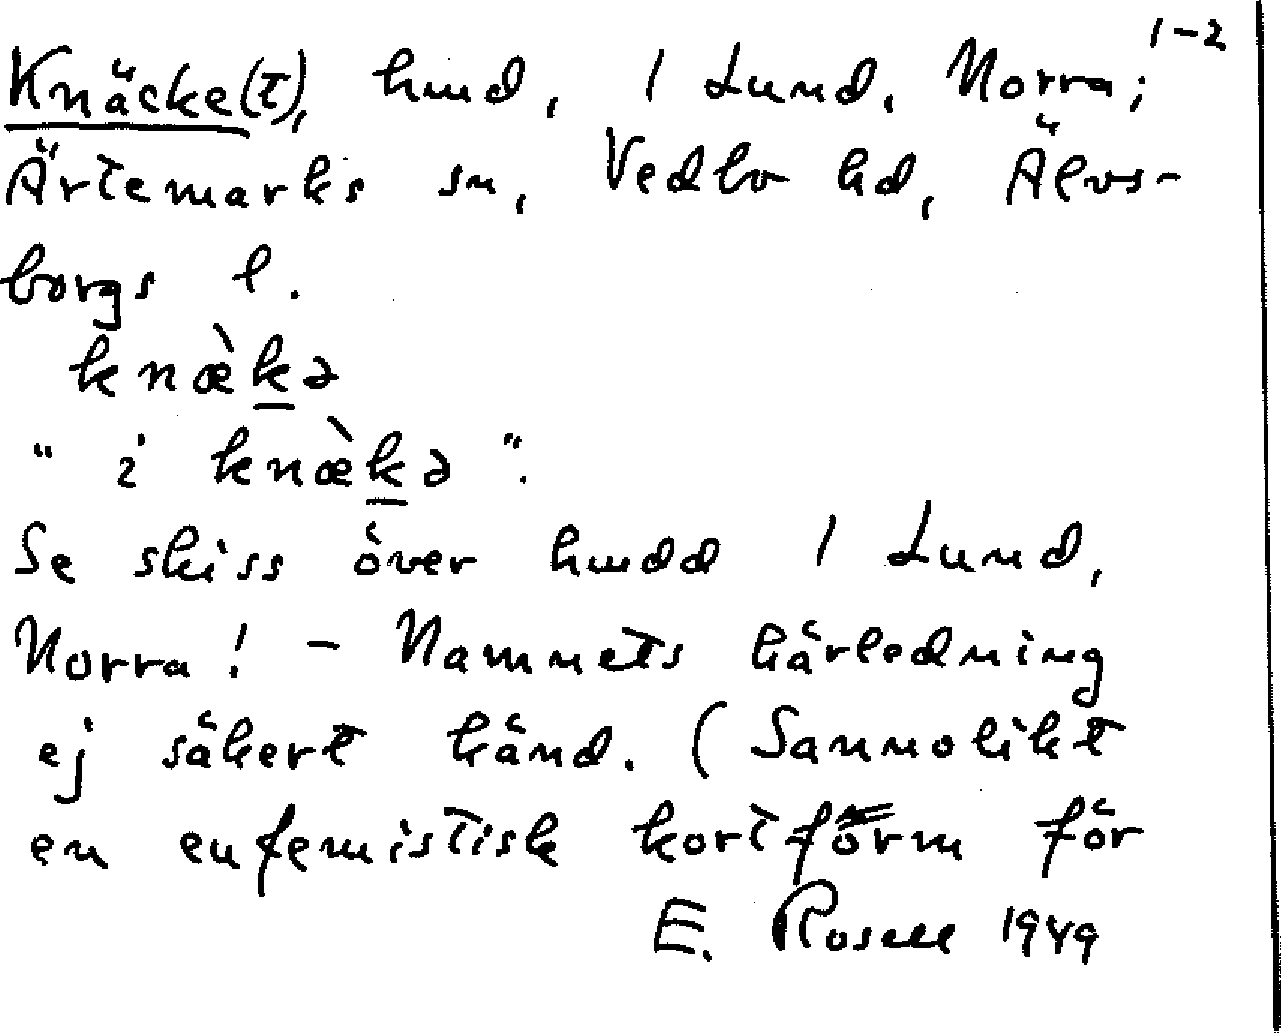 1-2
Knäcke(t), hmd, 1 Lund, Norra;
Ärtemarks sn, Vedbo hd, Älvs-
borgs l.
knæ̀kə
"i knæ̀kə".
Se skiss över hmdd 1 Lund,
Norra! - Namnets härledning
ej säkert känd. (Sannolikt
en eufemistisk kortform för
E. Rosell 1949